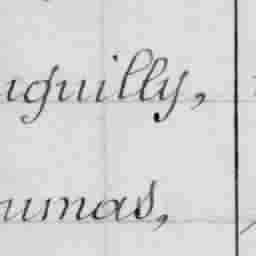 uguilly,
umas,